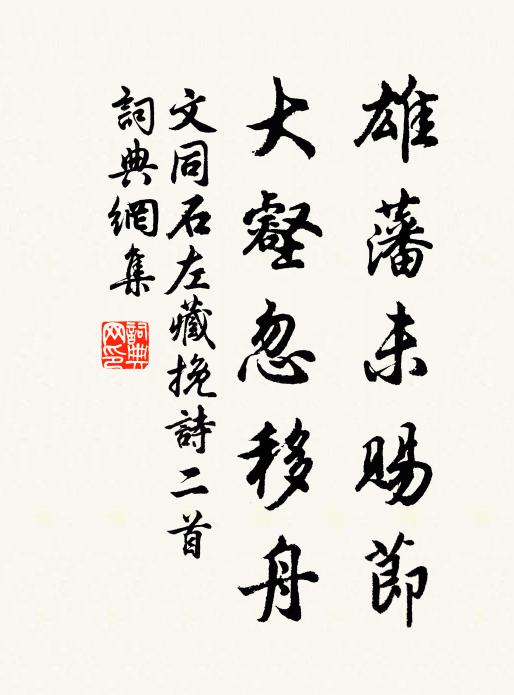 雄藩未賜節
大壑忽移舟
文同石左藏挽詩二首
詞典網集
詞典网印